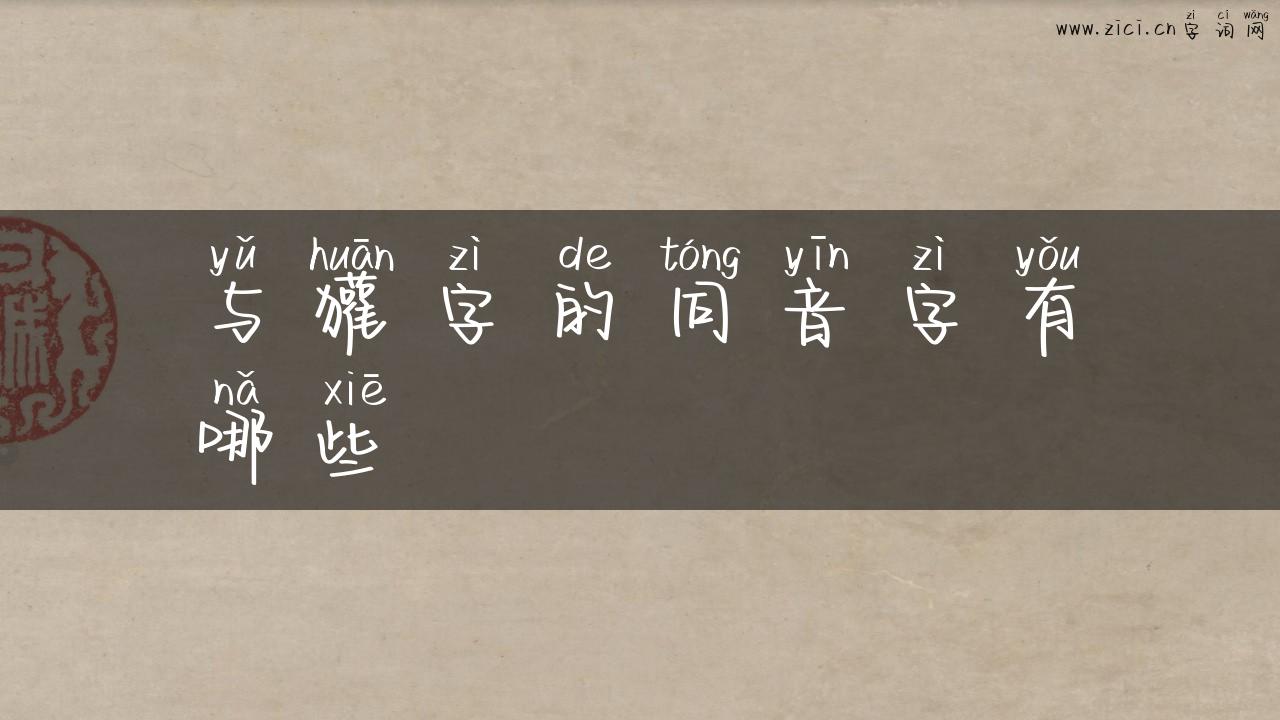 www.zici.cn
zì cí wǎng
字词网
yǔ huān zì de tóng yīn zì yǒu
与獾字的同音字有
nǎ xiē
哪些